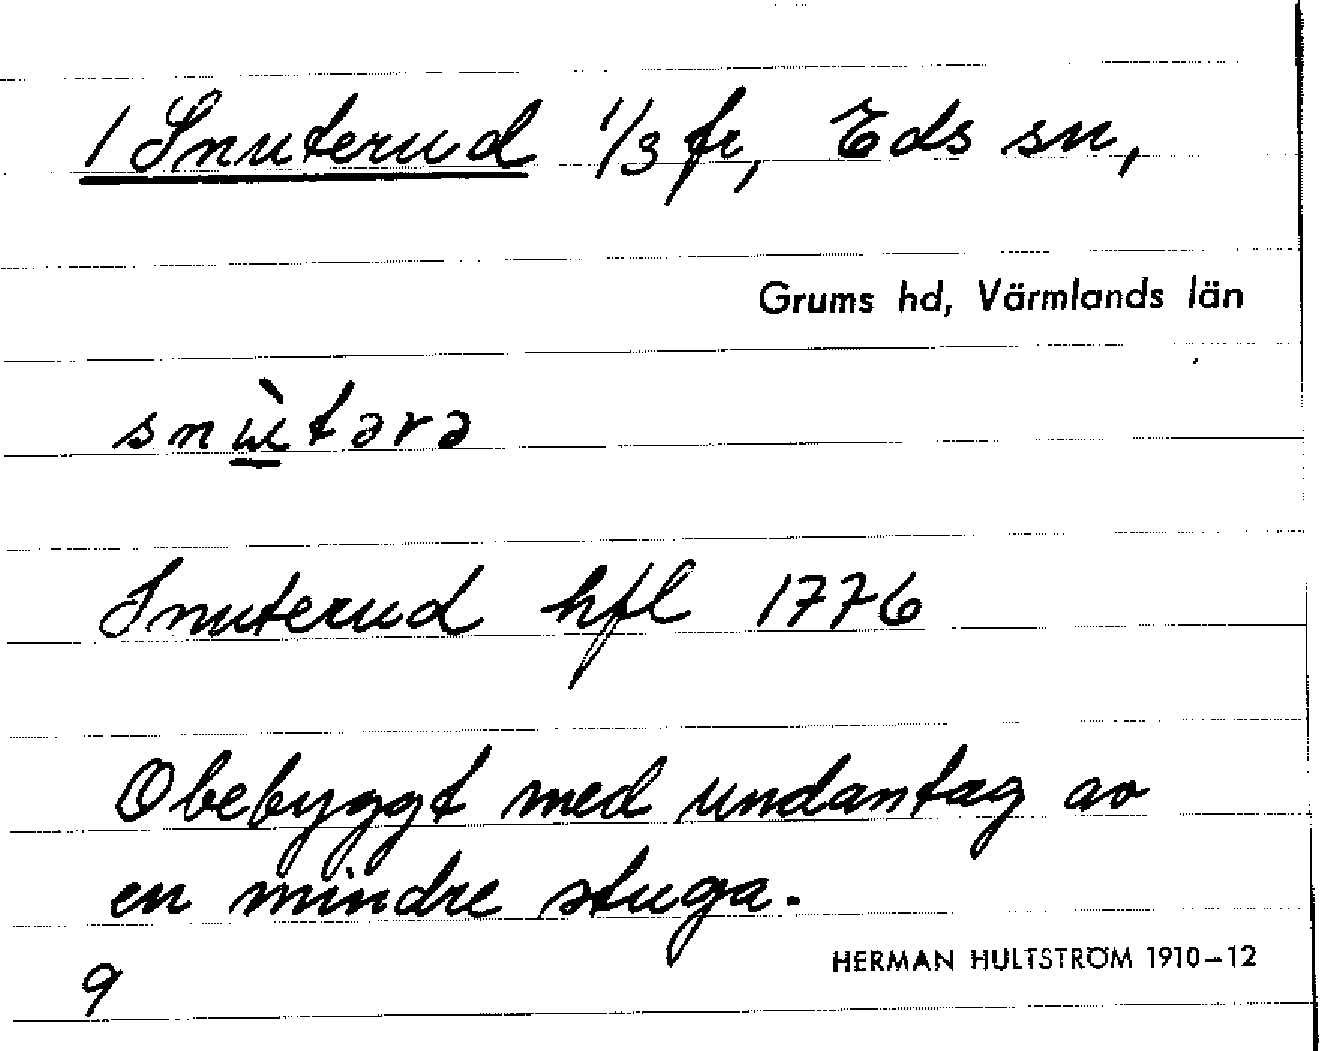 1 Snuterud 1/3 fr, Eds sn,
Grums hd, Värmlands län
snɯ̀tərə
Snuterud hfl 1776
Obebyggt med undantag av
en mindre stuga.
HERMAN HULTSTRÖM 1910–12
9